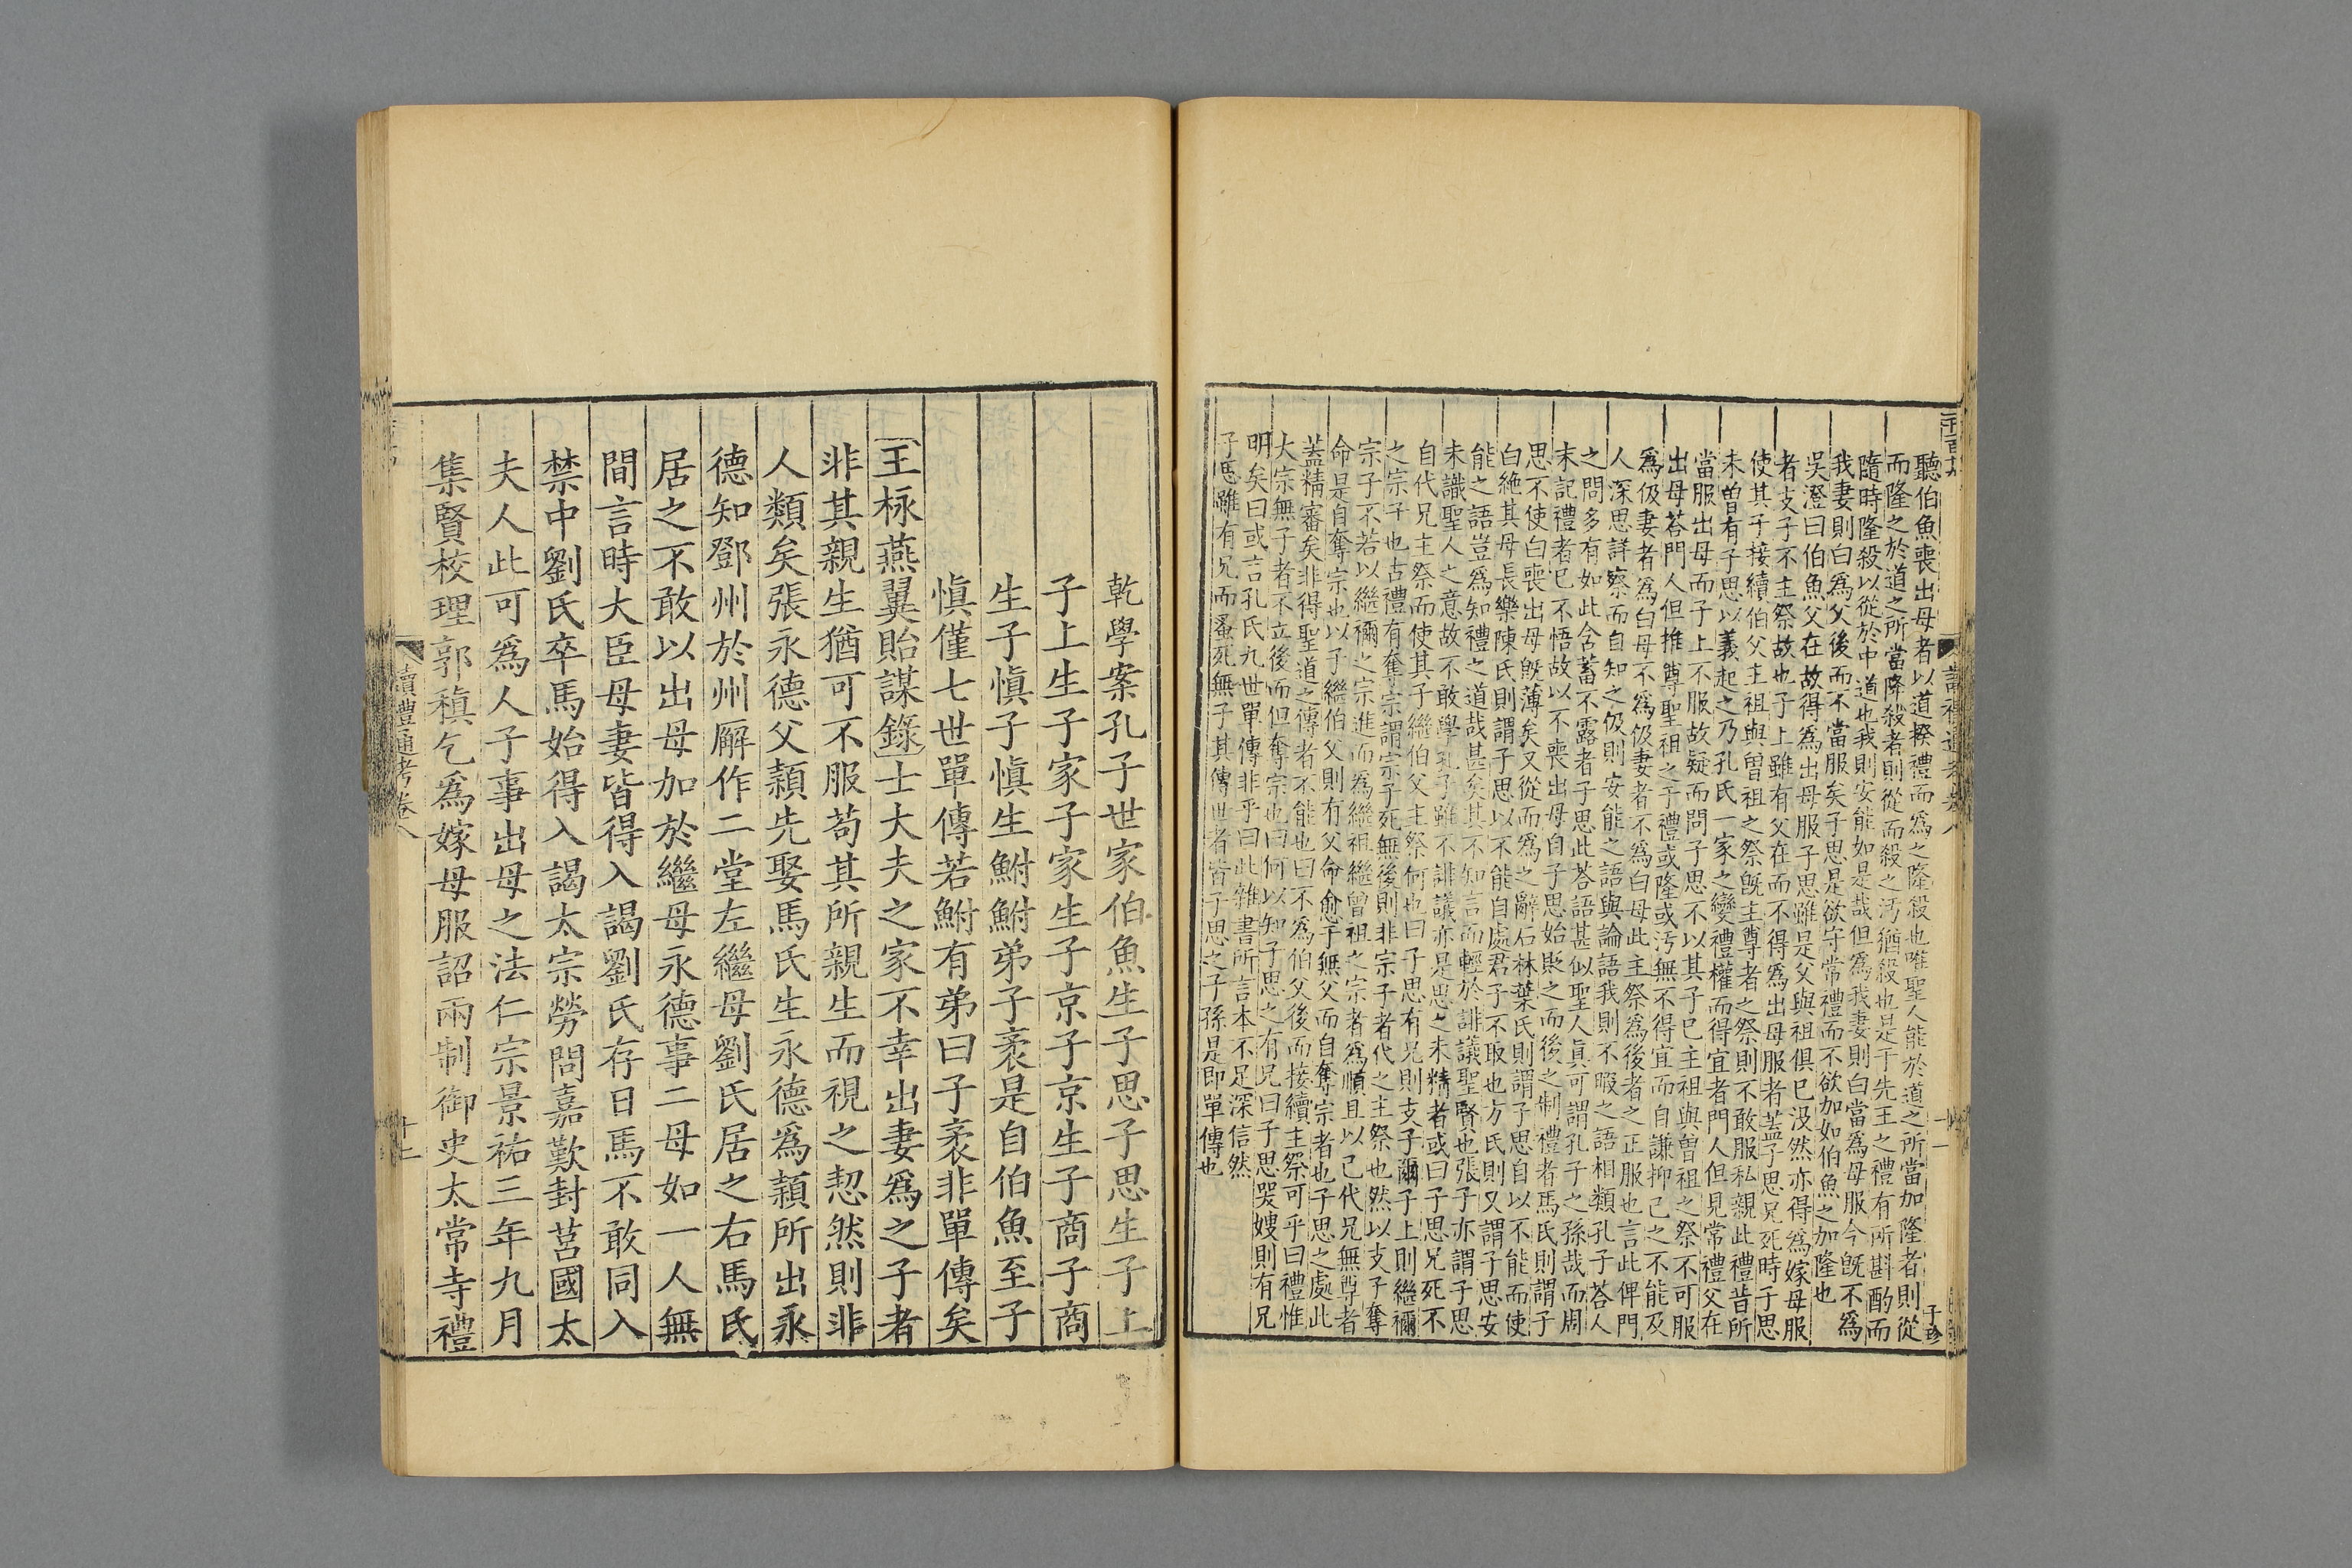 聽伯魚喪出母者以道揆禮而爲之隆殺也唯聖人能於道之所當加隆者則從
而隆之於道之所當降殺者則從而殺之汚猶殺也是于先王之禮有所斟酌而
隨時隆殺以從於中道也我則安能如是哉但爲我妻則白當爲母服今旣不爲
我妻則白爲父後而不當服矣子思是欲守常禮而不欲加如伯魚之加隆也
吳澄曰伯魚父在故得爲出母服子思雖是父與祖俱已沒然亦得爲嫁母服
者支子不主祭故也子上雖有父在而不得爲出母服者蓋子思兄死時子思
使其子接續伯父主祖與曾祖之祭旣主尊者之祭則不敢服私親此禮昔所
未曾有子思以義起之乃孔氏一家之變禮權而得宜者門人但見常禮父在
當服出母而子上不服故疑而問子思不以其子已主祖與曾祖之祭不可服
出母荅門人但推尊聖祖之于禮或隆或汚無不得宜而自謙抑己之不能及
爲伋妻者爲白母不爲伋妻者不爲白母此主祭爲後者之正服也言此俾門
人深思詳察而自知之伋則安能之語與論語我則不暇之語相類孔子荅人
之問多有如此含蓄不露者子思此荅語甚似聖人眞可謂孔子之孫哉而周
末記禮者已不悟故以不喪出母自子思始貶之而後之制禮者馬氏則謂子
思不使白喪出母旣薄矣又從而爲之辭石林葉氏則謂子思自以不能而使
白絶其母長樂陳氏則謂子思以不能自處君子不取也方氏則又謂子思安
能之語豈爲知禮之道哉甚矣其不知言而輕於誹議聖賢也張子亦謂子思
未識聖人之意故不敢學孔子雖不誹議亦是思之未精者或曰子思兄死不
自代兄主祭而使其子繼伯父主祭何也曰子思有兄則支子爾子上則繼禰
之宗子也古禮有奪宗謂宗子死無後則非宗子者代之主祭也然以支子奪
宗子不若以繼禰之宗進而爲繼祖繼曾祖之宗者爲順且以己代兄無尊者
命是自奪宗也以子繼伯父則有父命愈于無父而自奪宗者也子思之處此
蓋精審矣非得聖道之傳者不能也曰不爲伯父後而接續主祭可乎曰禮惟
大宗無子者不立後而但奪宗也曰何以知子思之有兄曰子思哭嫂則有兄
明矣曰或言孔氏九世單傳非乎曰此雜書所言本不足深信然
子思雖有兄而蚤死無子其傳世者皆子思之子孫是即單傳也
乾學案孔子世家伯魚生子思子思生子上
子上生子家子家生子京子京生子商子商
生子愼子愼生鮒鮒弟子袤是自伯魚至子
愼僅七世單傳若鮒有弟曰子袤非單傳矣
王栐燕翼貽謀錄士大夫之家不幸出妻爲之子者
非其親生猶可不服苟其所親生而視之恝然則非
人類矣張永德父頴先娶馬氏生永德爲頴所出永
德知鄧州於州廨作二堂左繼母劉氏居之右馬氏
居之不敢以出母加於繼母永德事二母如一人無
間言時大臣母妻皆得入謁劉氏存日馬不敢同入
禁中劉氏卒馬始得入謁太宗勞問嘉歎封莒國太
夫人此可爲人子事出母之法仁宗景祐三年九月
集賢校理郭稹乞爲嫁母服詔兩制御史太常寺禮
讀禮通考卷八